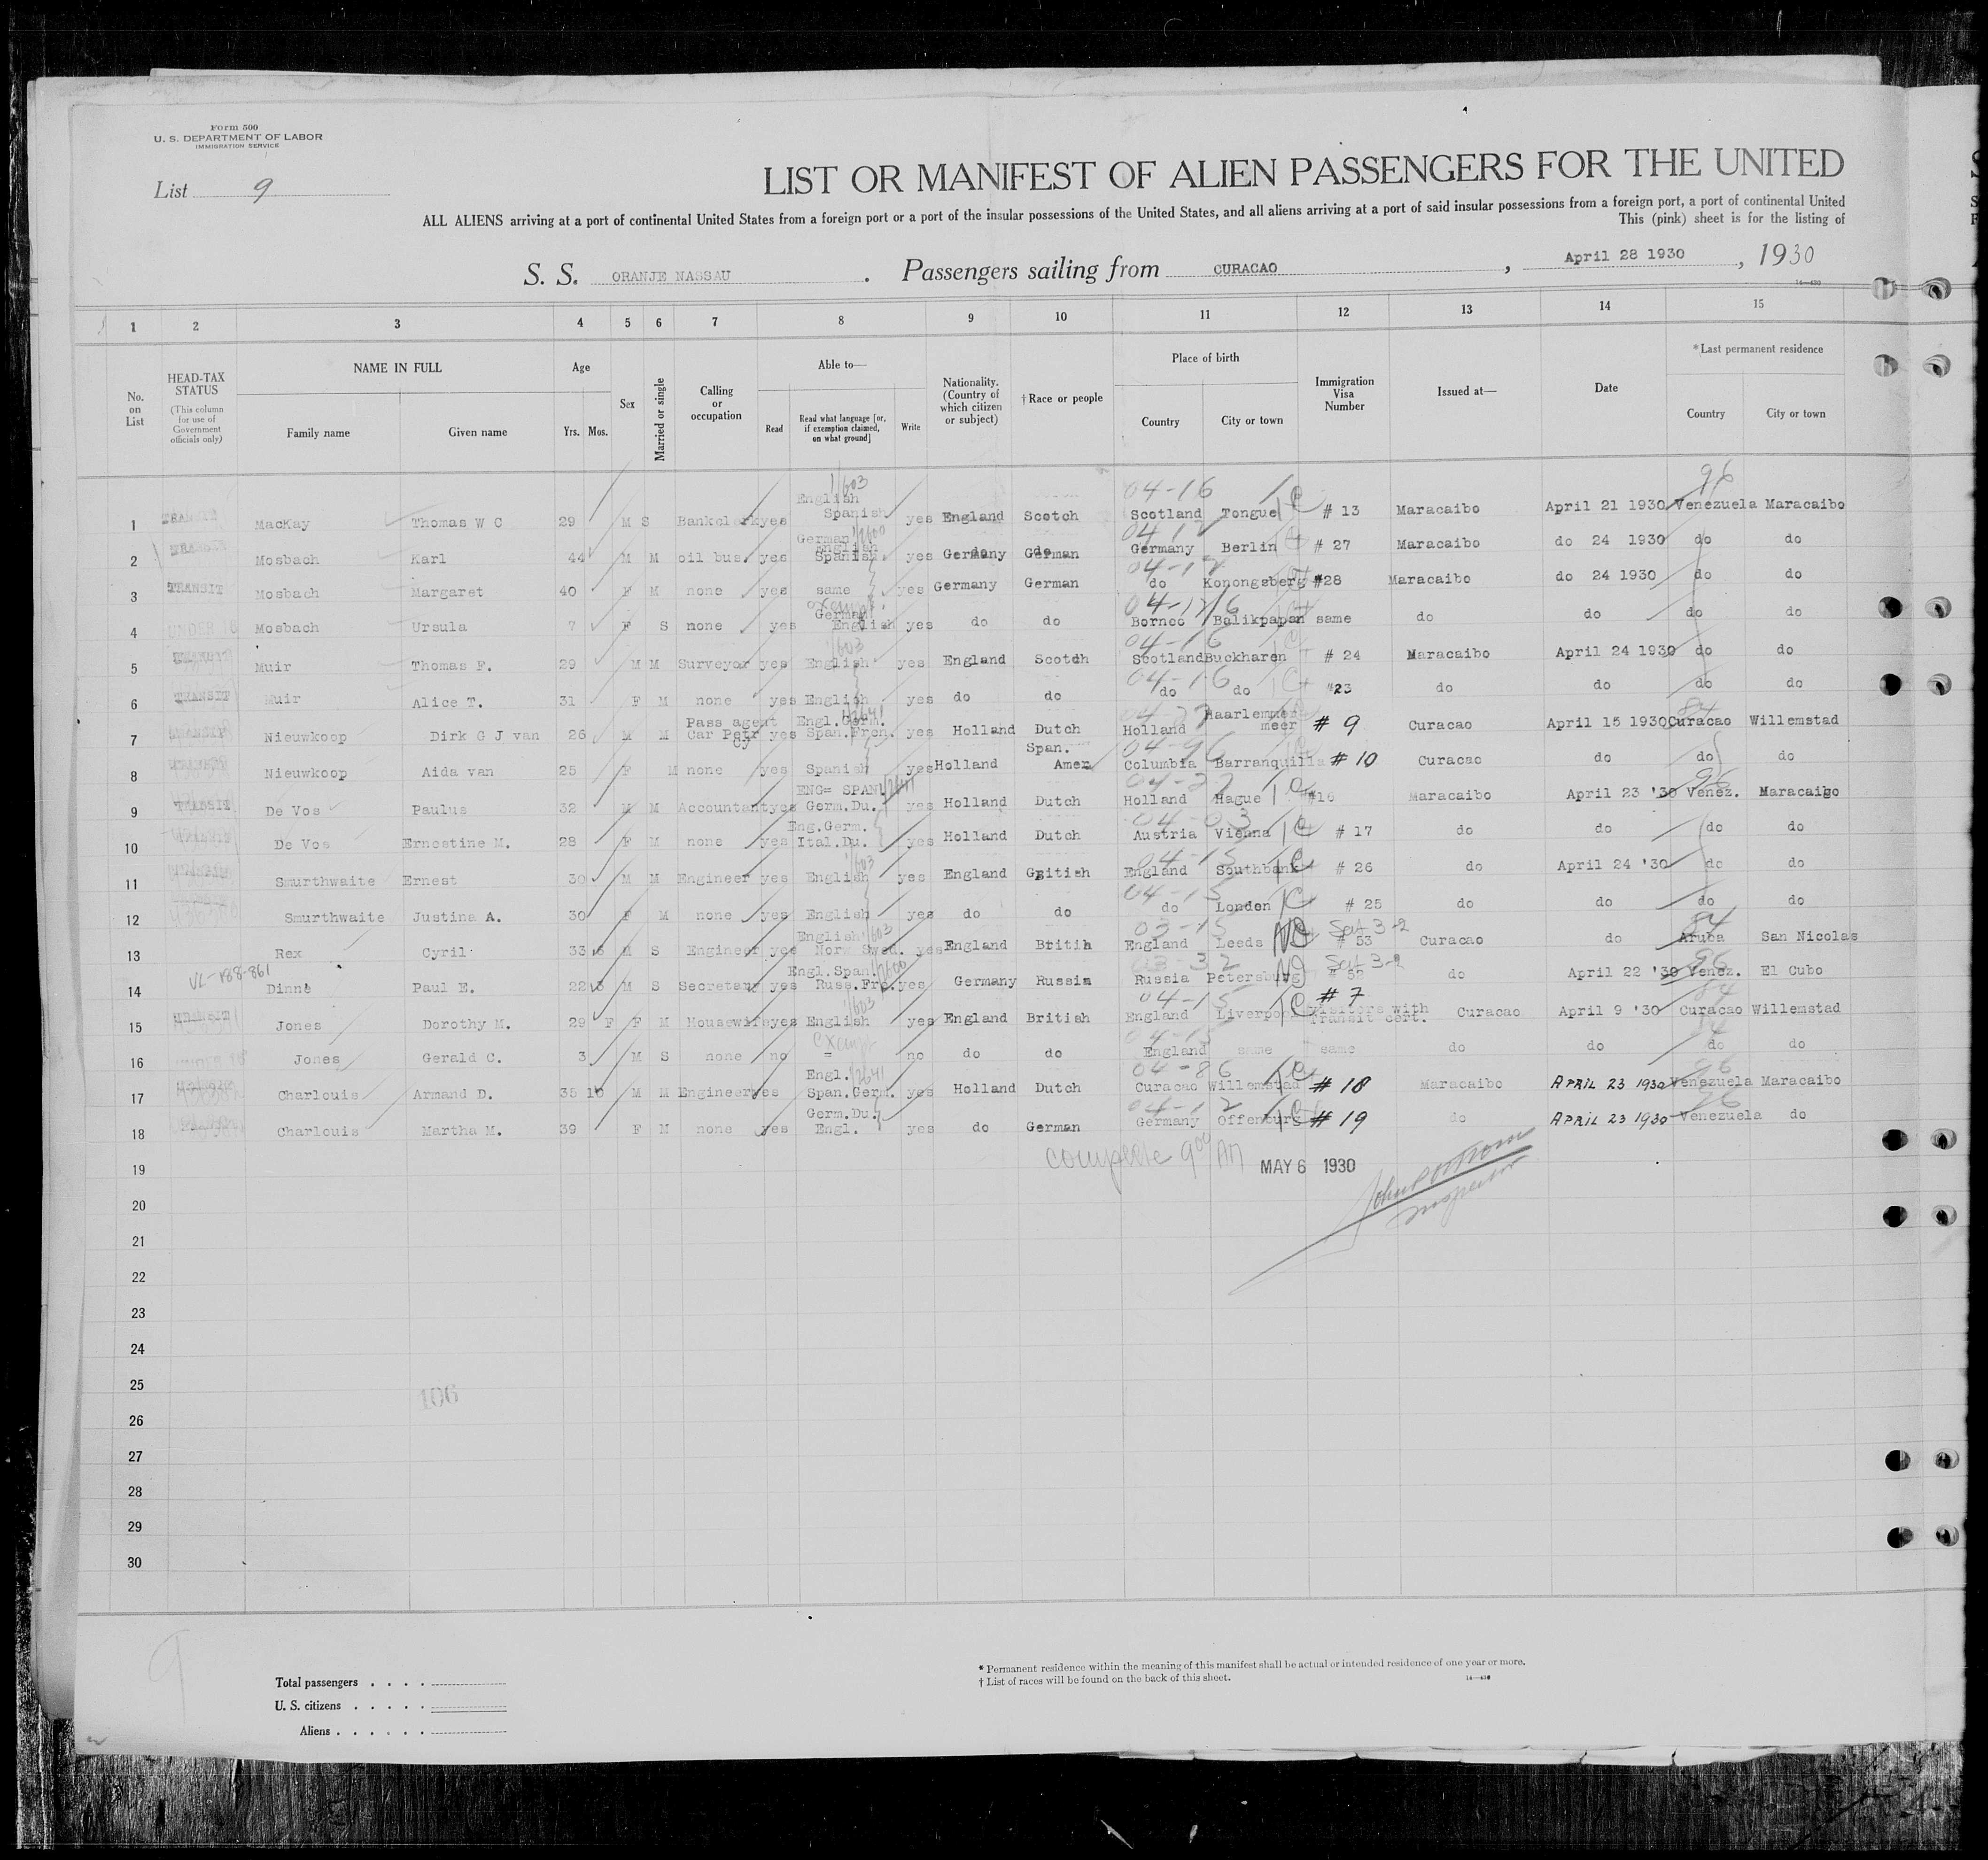 Form 500
U. S. DEPARTMENT OF LABOR
IMMIGRATION SERVICE
List 9
LIST OR MANIFEST OF ALIEN PASSENGERS FOR THE UNITED
ALL ALIENS arriving at a port of continental United States from a foreign port or a port of the insular possessions of the United States, and all aliens arriving at a port of said insular possessions from a foreign port, a port of continental United
This (pink) sheet is for the listing of
S. S. ORANJE NASSAU . Passengers sailing from CURACAO , April 28 1930 , 1930
14—430
1 2 3 4 5 6 7 8 9 10 11 12 13 14 15
No. on List
HEAD-TAX STATUS
(This column for use of Government officials only)
NAME IN FULL
Family name Given name
Age
Yrs. Mos.
Sex
Married or single
Calling or occupation
Able to—
Read
Read what language [or, if exemption claimed, on what ground]
Write
Nationality. (Country of which citizen or subject)
†Race or people
Place of birth
Country City or town
Immigration Visa Number
Issued at—
Date
*Last permanent residence
Country City or town
1 TRANSIT MacKay Thomas W C 29 M S Bankclerk yes English Spanish yes England Scotch 04-16 Scotland Tongue # 13 Maracaibo April 21 1930 96 Venezuela Maracaibo
2 TRANSIT Mosbach Karl 44 M M oil bus. yes German English Spanish yes Germany German Germany Berlin # 27 Maracaibo do 24 1930 do do
3 TRANSIT Mosbach Margaret 40 F M none yes same yes Germany German do Konongsberg #28 Maracaibo do 24 1930 do do
4 UNDER 16 Mosbach Ursula 7 F S none yes exempt German English yes do do Borneo Balikpapan same do do do do
5 TRANSIT Muir Thomas F. 29 M M Surveyor yes English yes England Scotch 04-16 Scotland Buckharen # 24 Maracaibo April 24 1930 do do
6 TRANSIT Muir Alice T. 31 F M none yes English yes do do 04-16 do do #23 do do do do
7 Nieuwkoop Dirk G J van 26 M M Pass agent Car Petr Cy yes Engl.Germ. Span.Fren. yes Holland Dutch Holland Haarlemmer meer # 9 Curacao April 15 1930 84 Curacao Willemstad
8 TRANSIT Nieuwkoop Aida van 25 F M none yes Spanish yes Holland Span. Amer 04-96 Columbia Barranquilla # 10 Curacao do do do
9 TRANSIT De Vos Paulus 32 M M Accountant yes ENG= SPAN. Germ.Du. yes Holland Dutch Holland Hague #16 Maracaibo April 23 '30 96 Venez. Maracaibo
10 De Vos Ernestine M. 28 F M none yes Eng.Germ. Ital.Du. yes Holland Dutch 04-03 Austria Vienna # 17 do do do do
11 Smurthwaite Ernest 30 M M Engineer yes English yes England 04-15 England Southbank # 26 do April 24 '30 do do
12 Smurthwaite Justina A. 30 F M none yes English yes do do 04-15 do London # 25 do do do do
13 Rex Cyril 33 M S Engineer yes English Norw Swed. yes England Britih 03-15 England Leeds # 53 Curacao do 84 Aruba San Nicolas
VL-188-861
14 Dinné Paul E. 22 M S Secretary yes Engl.Span. Russ.Fr. yes Germany Russia Russia Petersburg # 52 do April 22 '30 96 Venez. El Cubo
15 TRANSIT Jones Dorothy M. 29 F F M Housewife yes English yes England British 04-15 England Liverpool # 7 Visitors with Transit cert. Curacao April 9 '30 84 Curacao Willemstad
16 UNDER 16 Jones Gerald C. 3 M S none no exempt = no do do 04-15 England same same do do do do
17 Charlouis Armand D. 35 10 M M Engineer yes Engl. Span.Germ. yes Holland Dutch 04-86 Curacao Willemstad # 18 Maracaibo APRIL 23 1930 96 Venezuela Maracaibo
18 Charlouis Martha M. 39 F M none yes Germ.Du. Engl. yes do German 04-12 Germany Offenburg # 19 do APRIL 23 1930 96 Venezuela do
complete 9 00 AM MAY 6 1930
Inspector
19
20
21
22
23
24
25
106
26
27
28
29
30
9
Total passengers
U. S. citizens
Aliens
* Permanent residence within the meaning of this manifest shall be actual or intended residence of one year or more.
† List of races will be found on the back of this sheet.
14—430